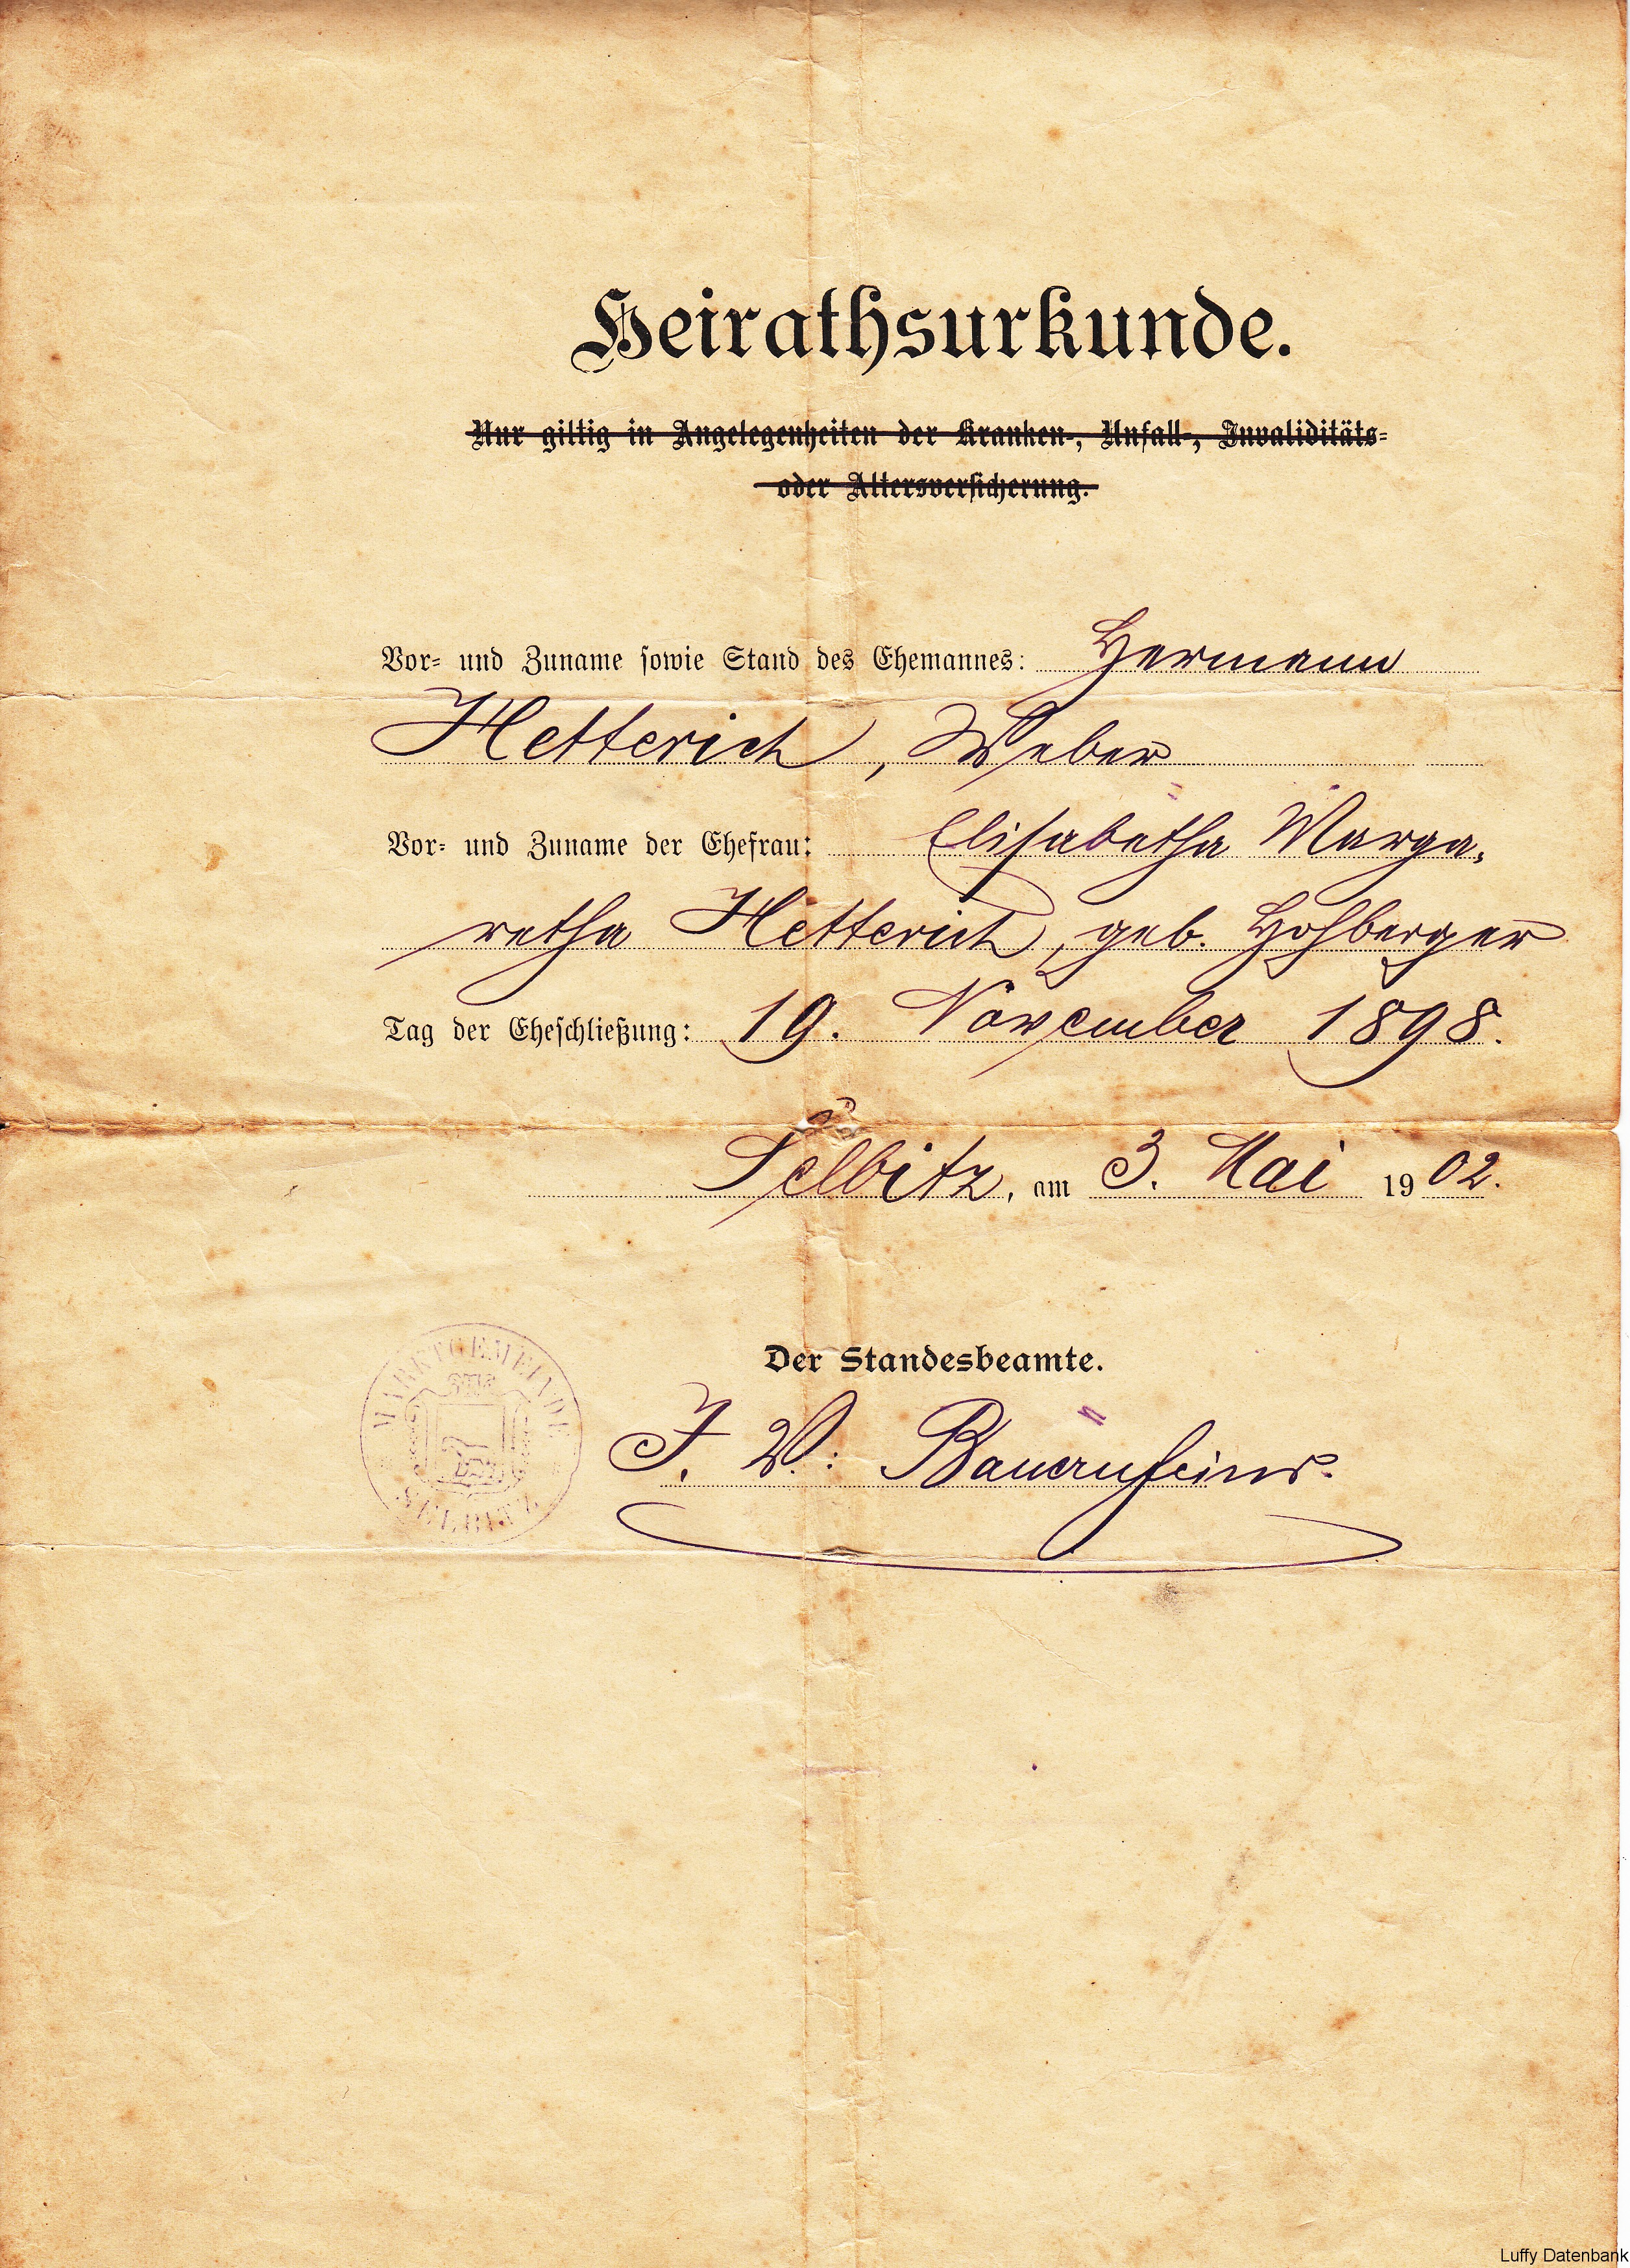 Heirathsurkunde.
Nur giltig in Angelegenheiten der Kranken-, Unfall-, Invaliditäts-
oder Altersversicherung.
Vor- und Zuname sowie Stand des Ehemannes: Hermann
Hetterich, Weber
Vor- und Zuname der Ehefrau: Elisabetha Marga-
retha Hetterich, geb. Hohberger
Tag der Eheschließung: 19. November 1898.
Selbitz, am 3. Mai 1902.
Der Standesbeamte.
J. V.: Bauernfeind.
MARKTGEMEINDE
SELBITZ
Luffy Datenbank